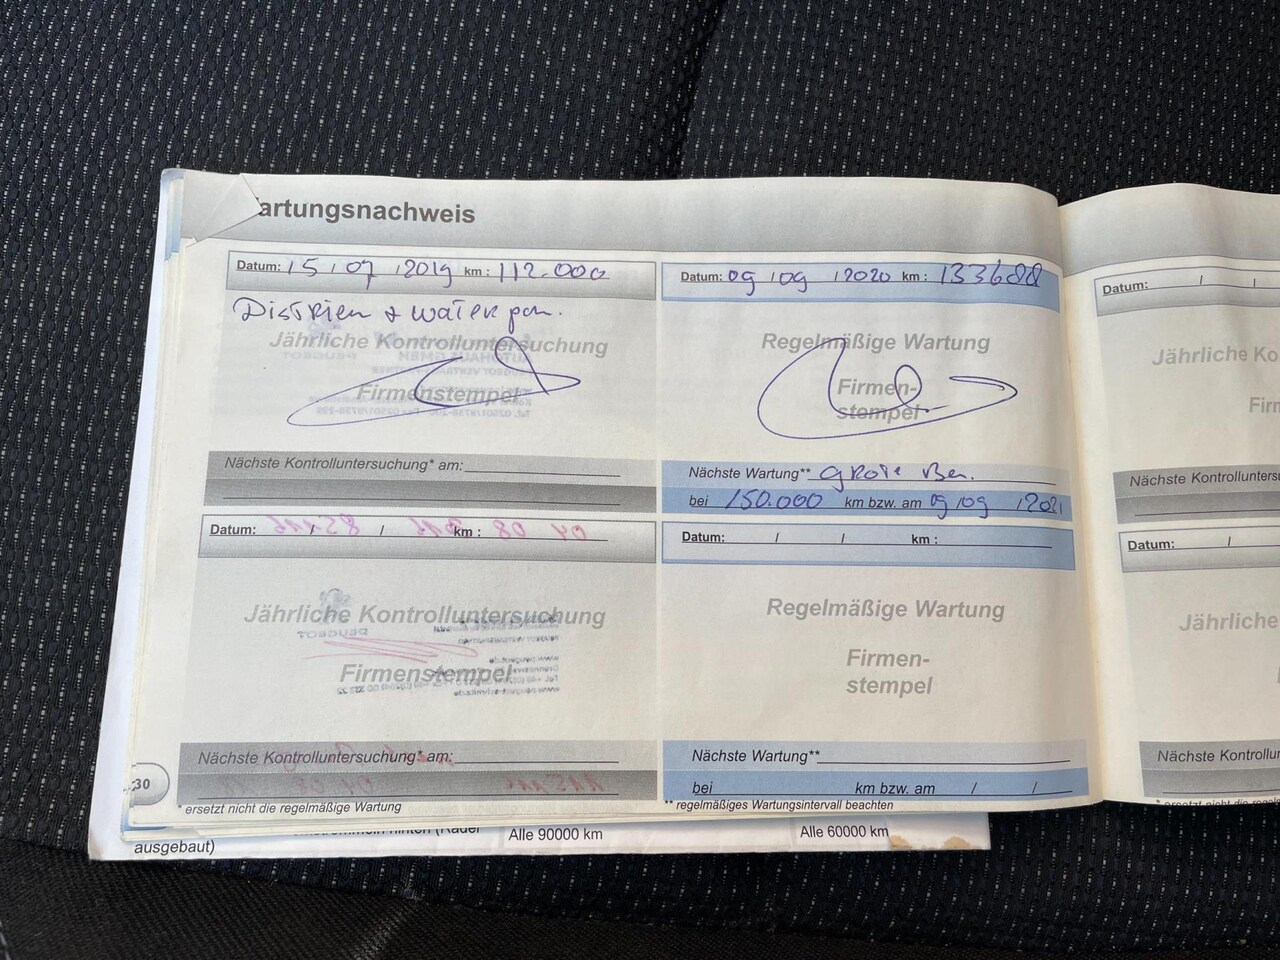 artungsnachweis
Datum: 15 / 07 / 2019 km : 112.000
Distrien + water pom.
Jährliche Kontrolluntersuchung
Firmenstempel
Nächste Kontrolluntersuchung* am:
Datum: 09 / 09 / 2020 km : 133688
Regelmäßige Wartung
Firmen-
stempel
Nächste Wartung** grote
bei 150.000 km bzw. am 09 / 09 / 2021
Datum: / / km :
Jährliche Kontrolluntersuchung
Firmenstempel
Nächste Kontrolluntersuchung* am:
Datum: / / km :
Regelmäßige Wartung
Firmen-
stempel
Nächste Wartung**
bei km bzw. am / /
30
* ersetzt nicht die regelmäßige Wartung
** regelmäßiges Wartungsintervall beachten
ausgebaut)
Alle 90000 km
Alle 60000 km
Datum: / /
Jährliche Ko
Firm
Nächste Kontrollunters
Datum: /
Jährliche
Nächste Kontrollun